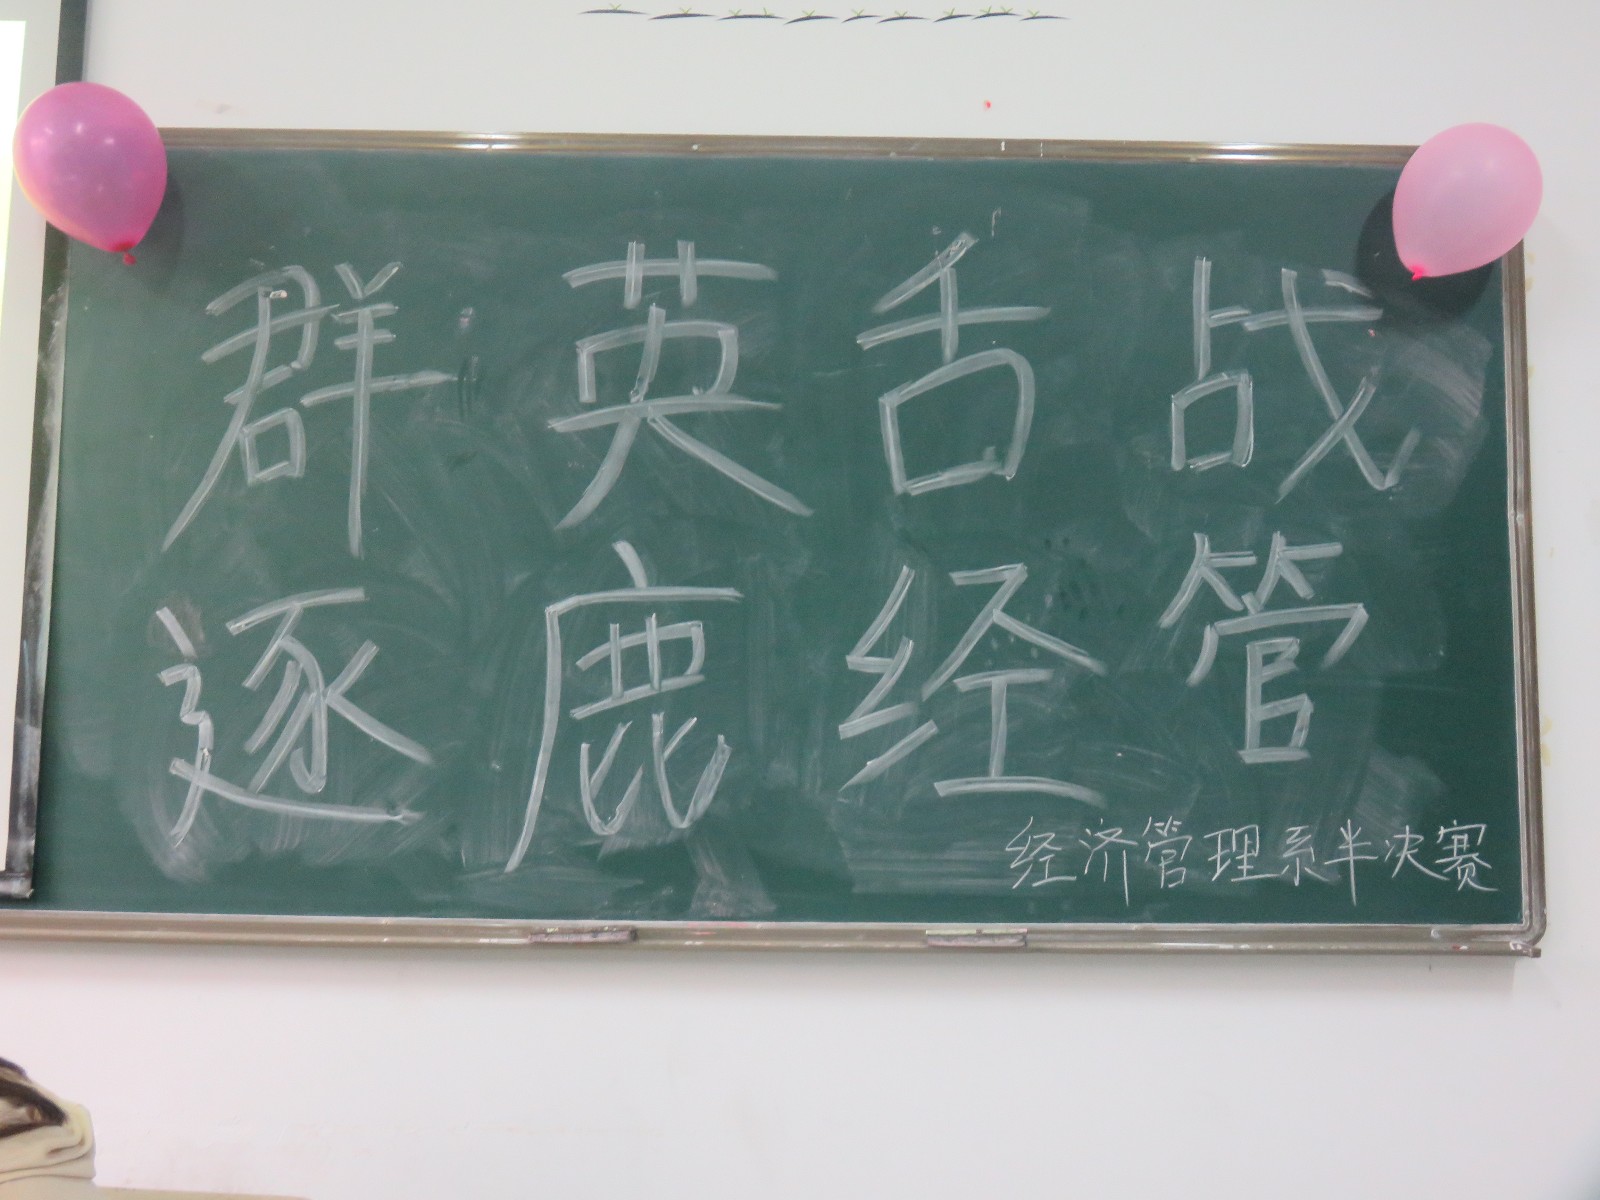 群英舌战
逐鹿经管
经济管理系半决赛